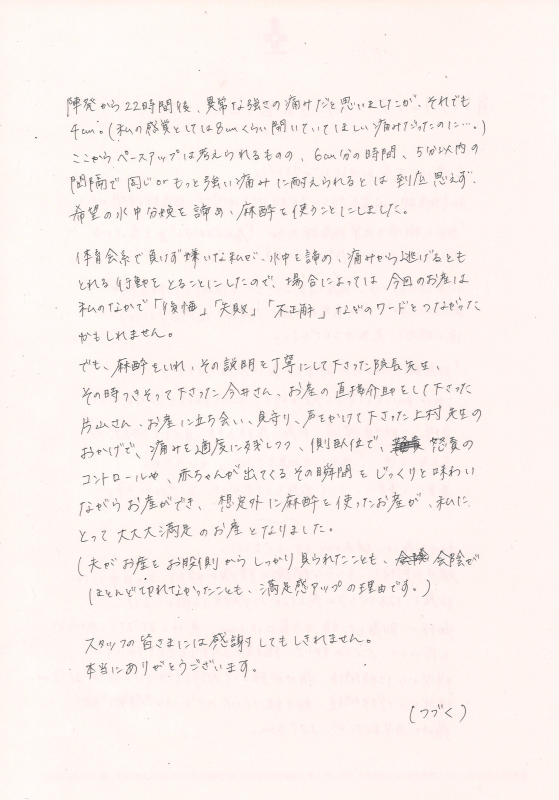 陣発から22時間後、異常な強さの痛みだと思いましたが、それでも
4cm。(私の感覚としては8cmくらい開いていてほしい痛みだったのに…。)
ここからペースアップは考えられるものの、6cm分の時間、5分以内の
間隔で同じorもっと強い痛みに耐えられるとは到底思えず、
希望の水中分娩を諦め、麻酔を使うことにしました。
体育会系で負けず嫌いな私が、水中を諦め、痛みから逃げるとも
とれる行動をとることにしたので、場合によっては今回のお産は
私のなかで「後悔」「失敗」「不正解」などのワードとつながった
かもしれません。
でも、麻酔をいれ、その説明を丁寧にして下さった院長先生、
その時つきそって下さった今井さん、お産の直接介助をして下さった
片山さん、お産に立ち会い、見守り、声をかけて下さった上村先生の
おかげで、痛みを適度に残しつつ、側臥位で、怒責の
コントロールや、赤ちゃんが出てくるその瞬間をじっくりと味わい
ながらお産ができ、想定外に麻酔を使ったお産が、私に
とって大大大満足のお産となりました。
(夫がお産をお股側からしっかり見られたことも、会陰が
ほとんど切れなかったことも、満足感アップの理由です。)
スタッフの皆さまには感謝してもしきれません。
本当にありがとうございます。
(つづく)